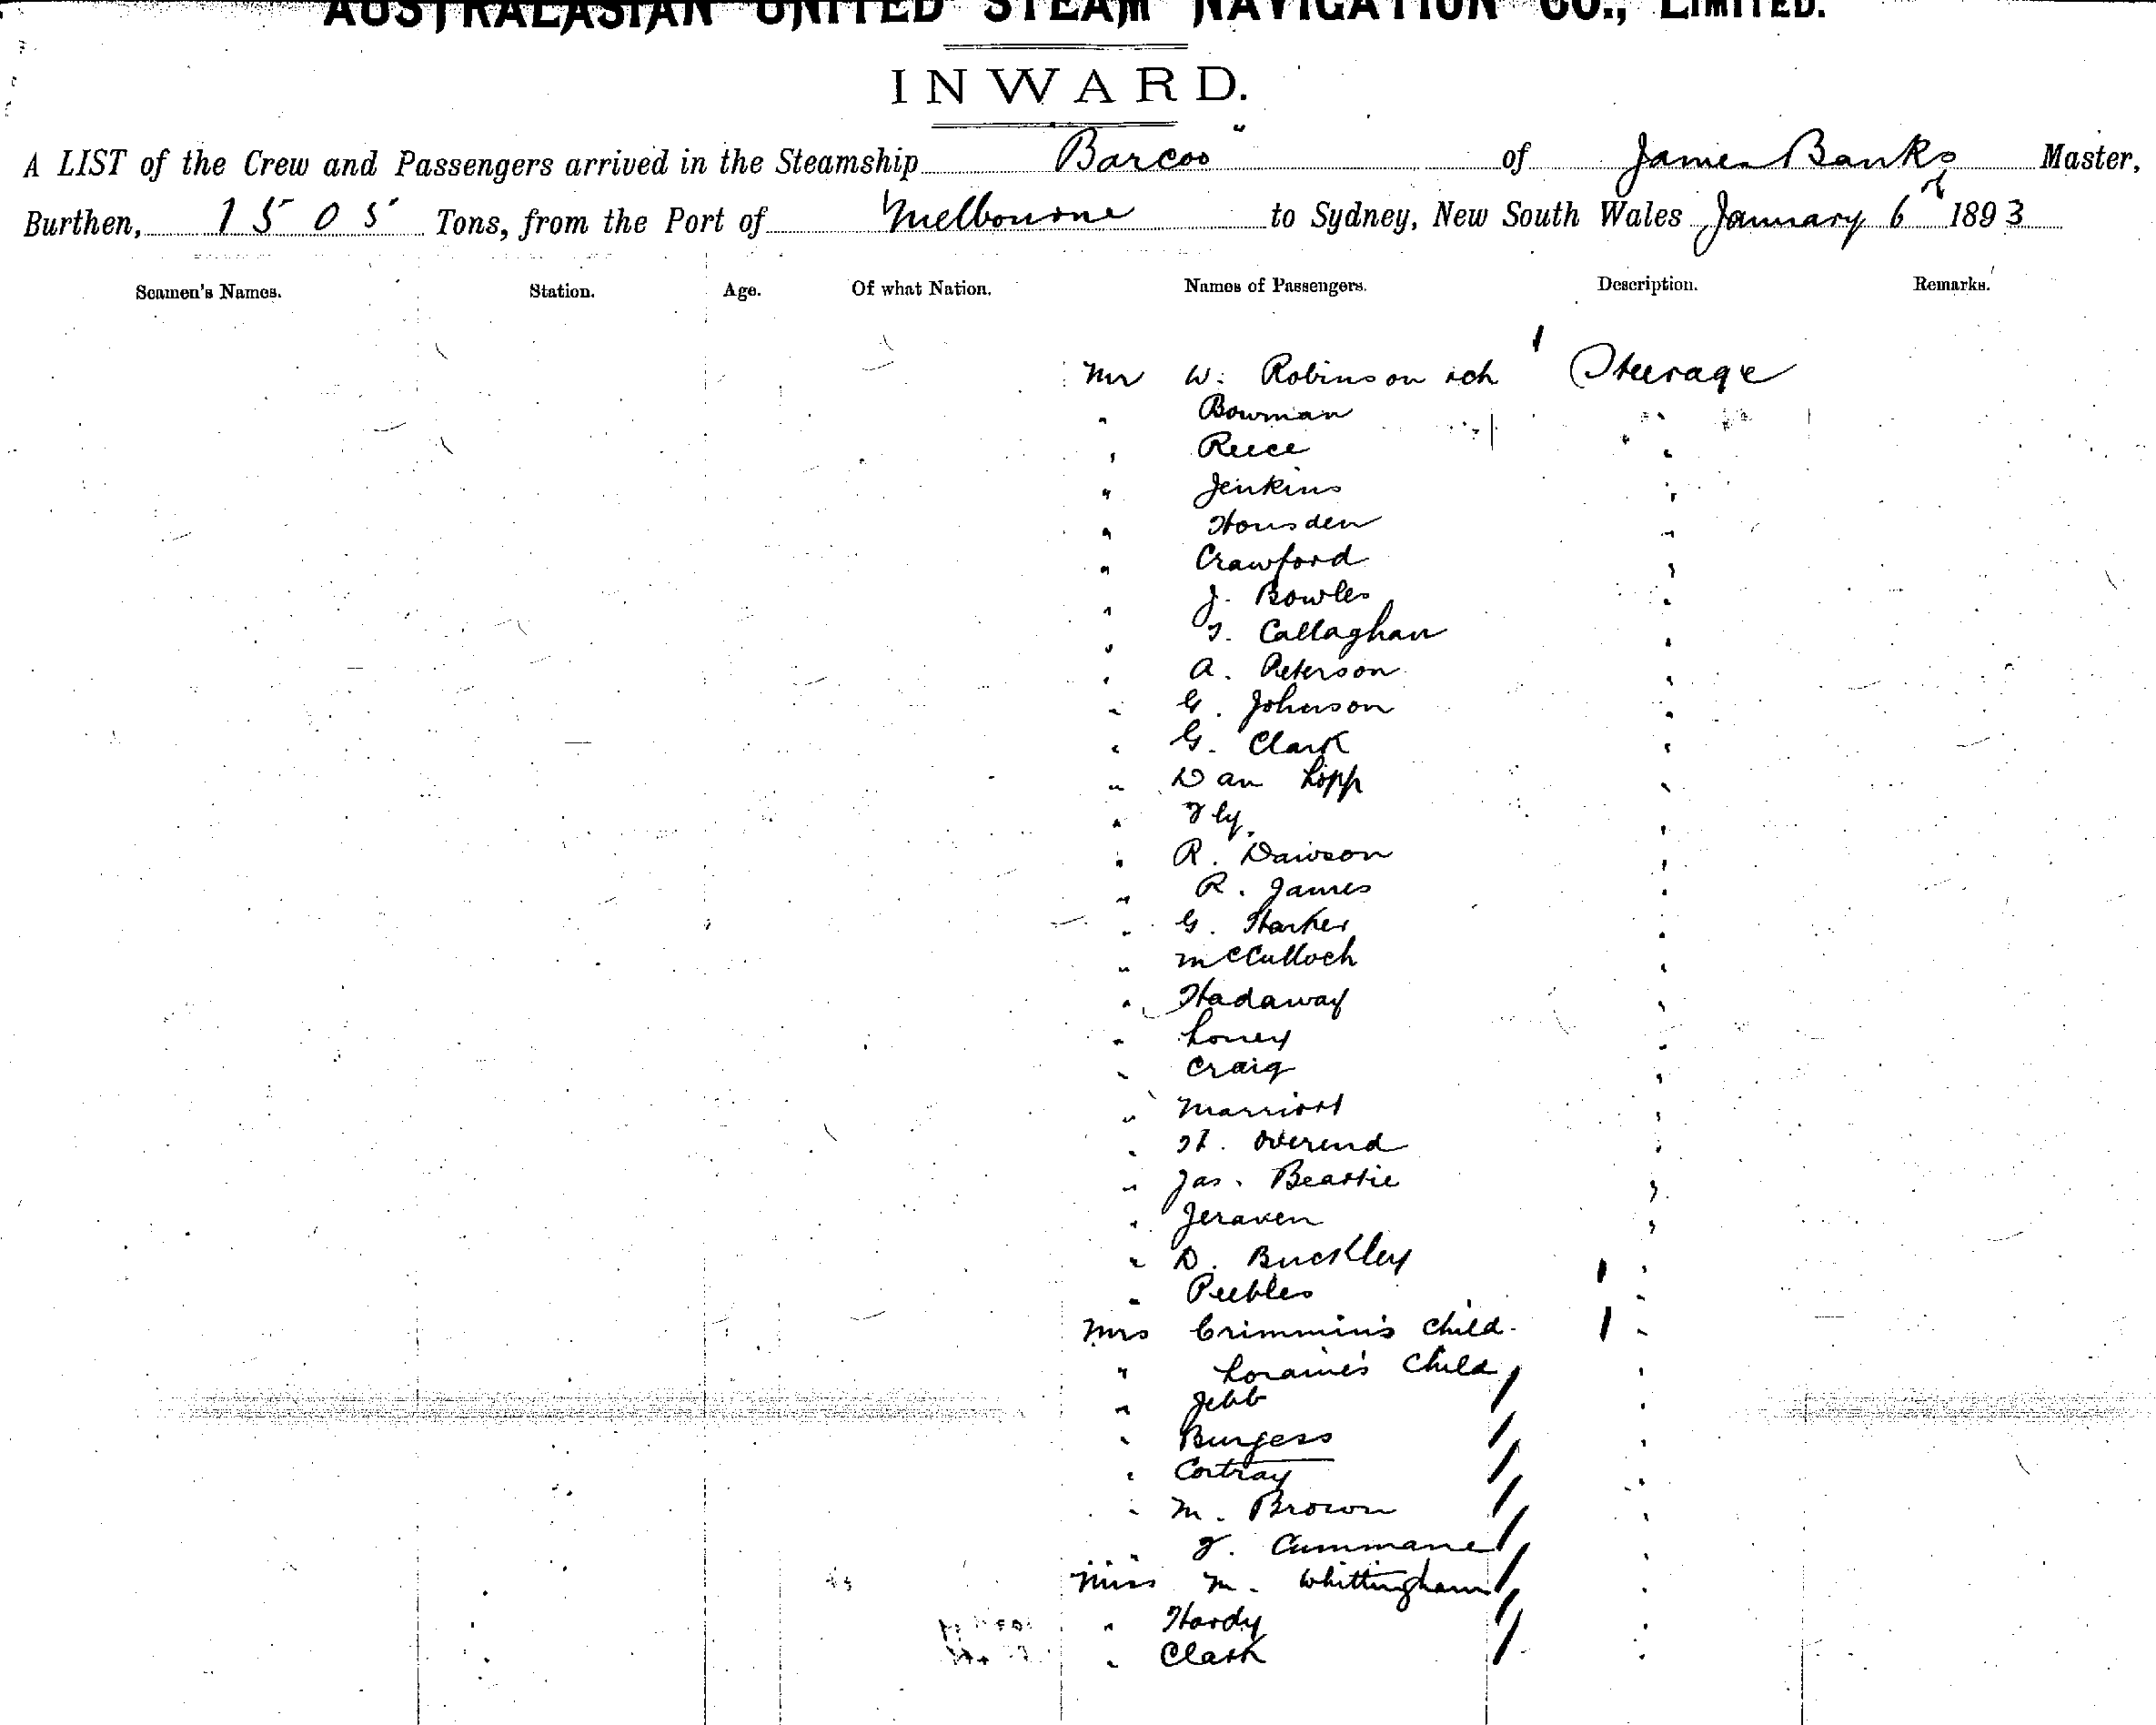 AUSTRALASIAN UNITED STEAM NAVIGATION CO., LIMITED.
INWARD.
A LIST of the Crew and Passengers arrived in the Steamship Barcoo " of James Banks Master,
Burthen, 1505 Tons, from the Port of Melbourne to Sydney, New South Wales January 6th 1893
Seamen's Names. Station. Age. Of what Nation. Names of Passengers. Description. Remarks.
Mr W. Robinson & ch 1 Steerage
" Bowman "
" Reece "
" Jenkins "
" Housden "
" Crawford "
" J. Bowles "
" T. Callaghan "
" A. Peterson "
" G. Johnson "
" G. Clark "
" Dan Lipp "
" Fly. "
" R. Dawson "
" R. James "
" G. Harker "
" McCulloch "
" Hadaway "
" Loney "
" Craig "
" Marriott "
" H. Overend "
" Jas. Beattie "
" Jeraven "
" D. Buckley "
" Peebles "
Mrs Crimmin's child. 1 "
" Loraine's child "
" Jebb "
" Burgess "
" Cortray "
" M. Brown "
" Cummane "
Miss M. Whittingham "
" Hardy "
" Clark "